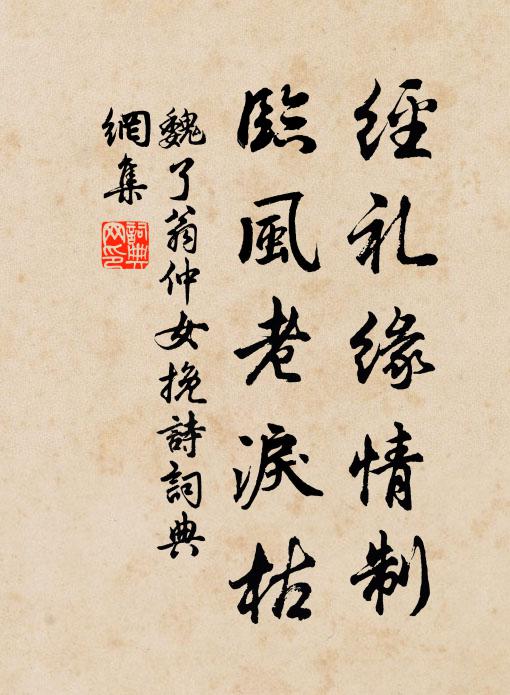 經礼緣情制
臨風老淚枯
魏了翁仲女挽詩詞典
網集
詞典
网印